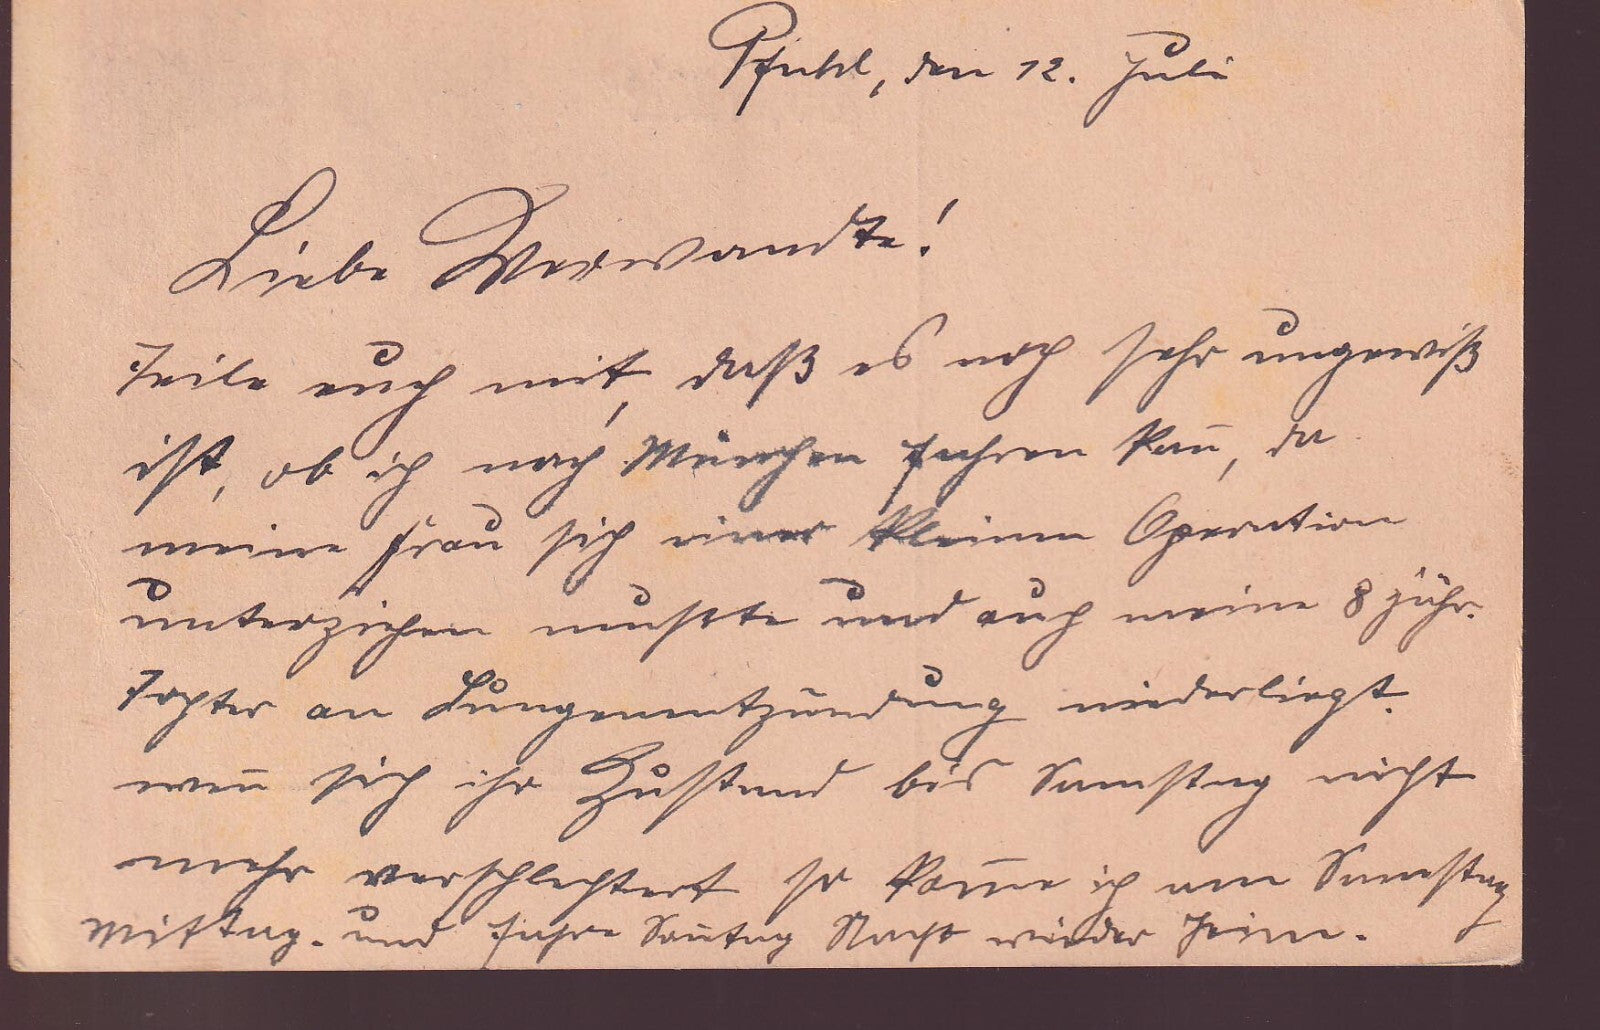 Pfuhl, den 12. Juli
Liebe Verwandte!
Teile euch mit, daß es noch sehr ungewiß
ist, ob ich nach München fahren kan̄, da
meine Frau sich einer kleinen Operation
unterziehen mußte und auch meine 8 jähr.
Tochter an Lungenentzündung niederliegt.
wen̄ sich ihr Zustand bis Samstag nicht
mehr verschlechtert so kom̄e ich am Samstag
Mittag. und fahre Son̄tag Nacht wieder heim.